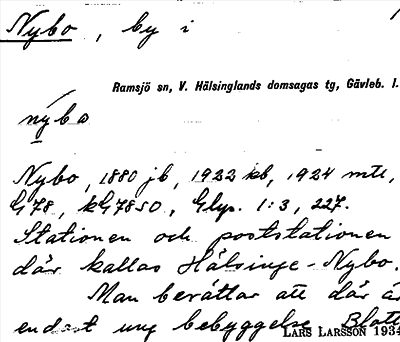 Nybo, by i
Ramsjö sn, V. Hälsinglands domsagas tg, Gävleb. l.
nýbo
Nybo, 1880 jb, 1922 kb, 1924 mtl,
G78, kG7850, Glyp. 1:3, 227.
Stationen och poststationen
där kallas Hälsinge-Nybo.
Man berättar att där är
endast ung bebyggelse. Blott
LARS LARSSON 1934